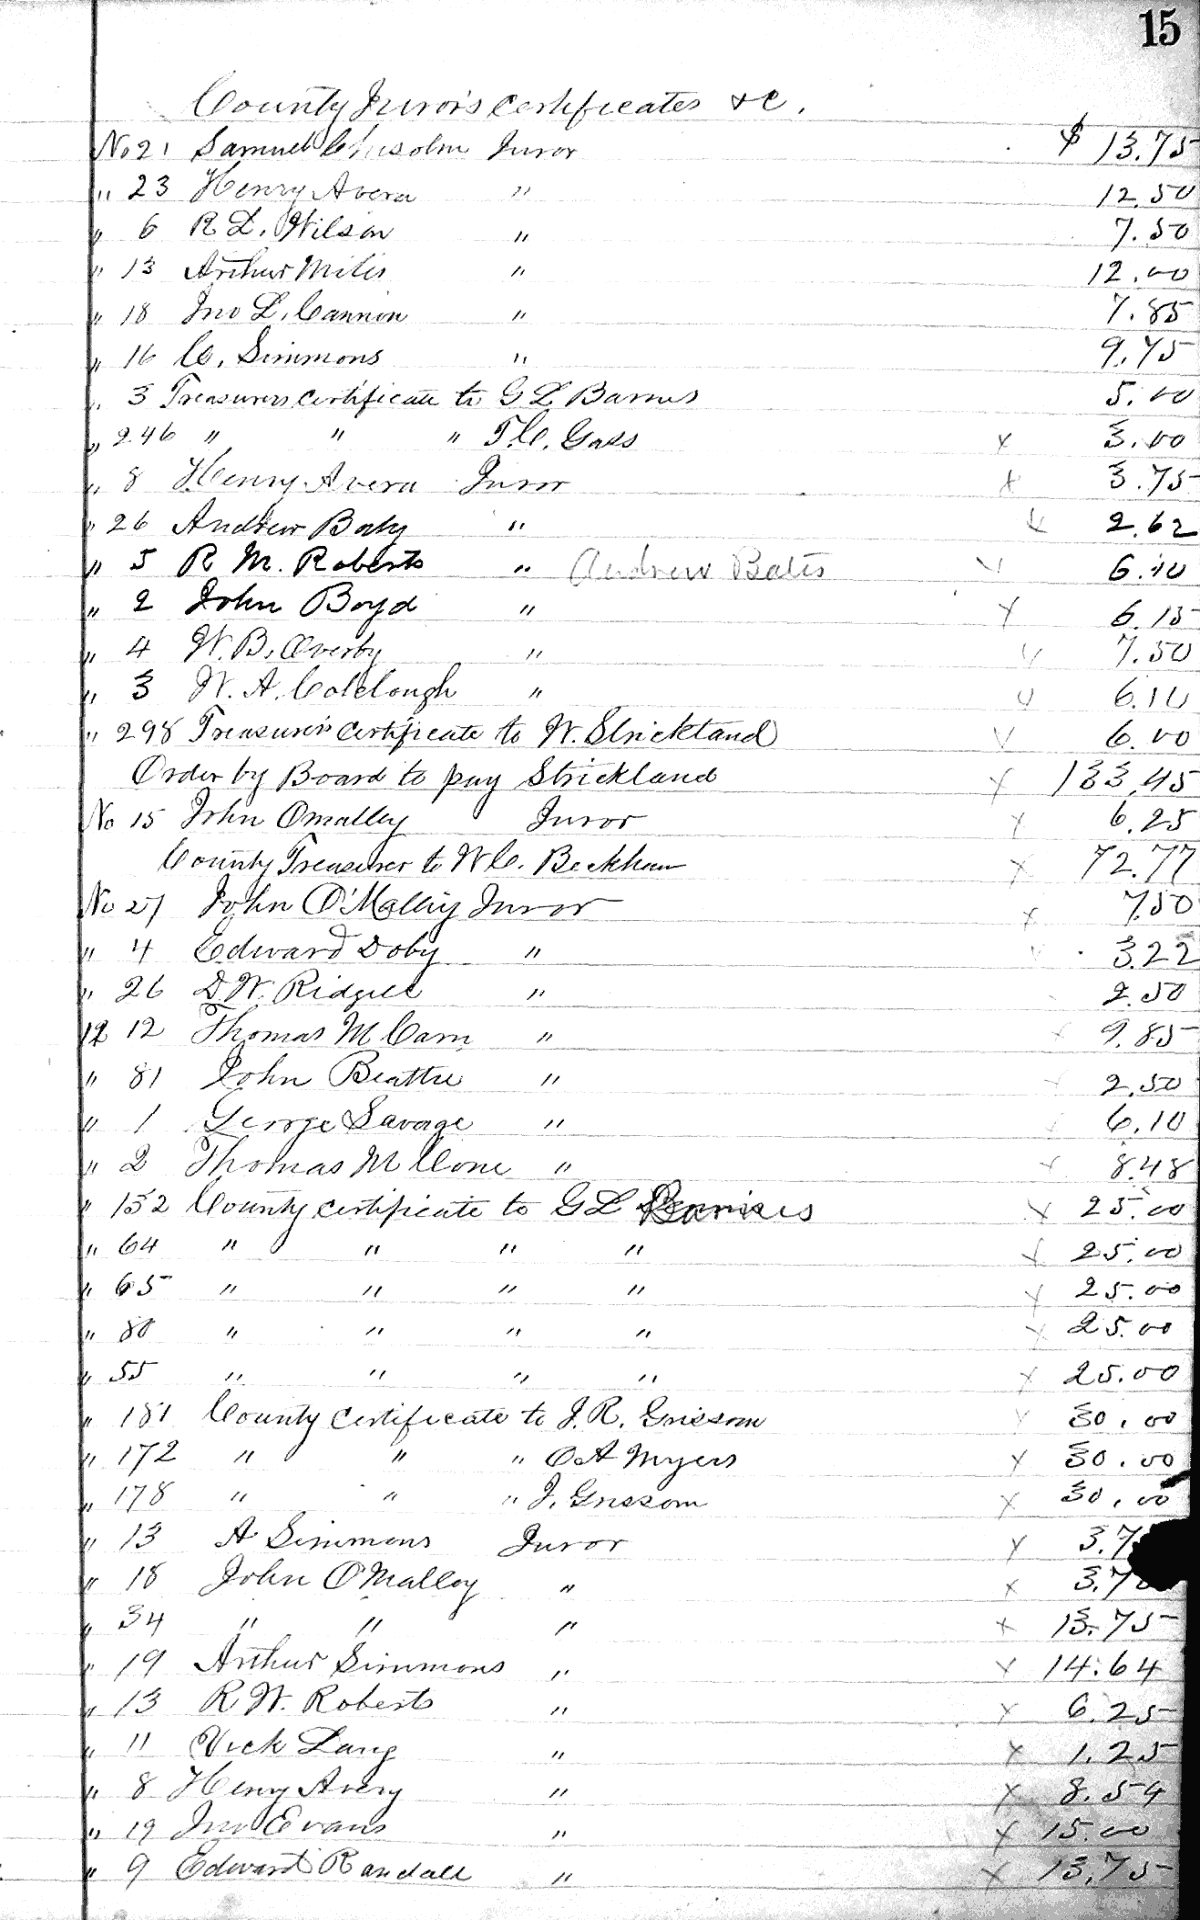 15
County Jurors certificates &c.
No 21 Samuel Chisolm Juror $ 13.75
" 23 Henry Avera " 12.50
" 6 R L. Wilson " 7.50
" 13 Arthur Miles " 12.00
" 18 Jno L. Cannon " 7.85
" 16 C. Simmons " 9.75
" 3 Treasurers certificate to G L Barnes 5.00
" 246 " " " T.C. Gass x 3.00
" 8 Henry Avera Juror x 3.75
" 26 Andrew Baty " x 2.62
" 5 R M. Roberts " Andrew Bates x 6.10
" 2 John Boyd " x 6.15
" 4 W. B. Overby " x 7.50
" 3 W. A. Colclough " x 6.10
" 298 Treasurer's certificate to W. Strickland x 6.00
Order by Board to pay Strickland x 133.45
No 15 John Omalley Juror x 6.25
County Treasurer to W C. Beckham x 72.77
No 27 John O'Malley Juror x 7.50
" 4 Edward Doby " x 3.22
" 26 D.W. Ridgell " 2.50
12 12 Thomas M Carn " x 9.85
" 81 John Beattie " x 2.50
" 1 George Savage " 6.10
" 2 Thomas M Cone " x 8.48
" 152 County certificate to G L Barnes x 25.00
" 64 " " " " x 25.00
" 65 " " " " x 25.00
" 80 " " " " x 25.00
" 55 " " " " x 25.00
" 181 County certificate to J. R. Grissom x 30.00
" 172 " " " O A Myers x 30.00
" 178 " " " J. Grissom x 30.00
" 13 A Simmons Juror x 3.7
" 18 John O'Malley " x 3.75
" 34 " " " x 13.75
" 19 Arthur Simmons " x 14.64
" 13 R. W. Roberts " x 6.25
" 11 Vick Lang " x 1.25
" 8 Henry Avery " x 8.54
" 19 Jno Evans " x 15.00
" 9 Edward Randall " x 13.75